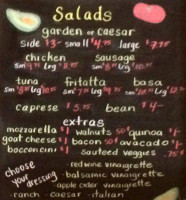 Salads
garden or caesar
side $3- small $4.75 large $7.75
chicken sausage
sm lrg sm lrg
tuna fritatta basa
sm lrg sm lrg sm lrg
caprese $5.75 bean $4-
extras
mozzarella $1 walnuts 50¢ quinoa $1-
goat cheese $1 bacon 50¢ avocado $1-
bocconcini sauteed veggies
choose your dressing
red wine vinaigrette
-balsamic vinaigrette
apple cider vinaigrette
-ranch -caesar -italian